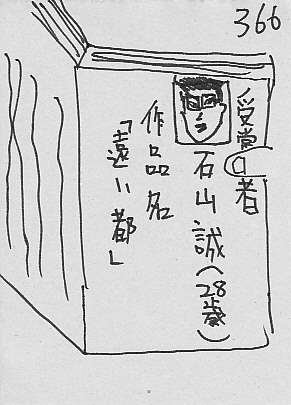 366
受賞者
石山誠(28歳)
作品名
「遠い都」